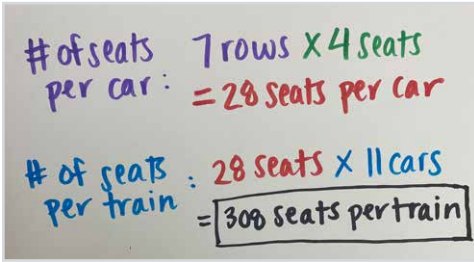 # of seats per car: 7 rows x 4 seats
= 28 seats per car
# of seats per train: 28 seats x 11 cars
= 308 seats per train